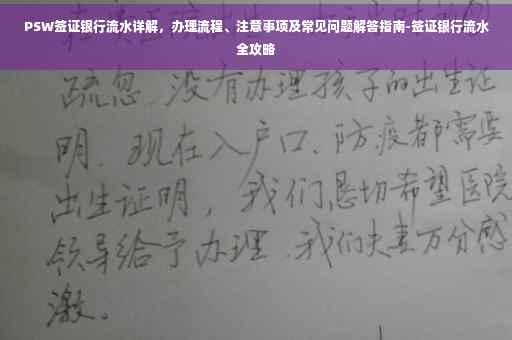 PSW签证银行流水详解，办理流程、注意事项及常见问题解答指南-签证银行流水
全攻略
疏忽.没有办理孩子的出生证
明.现在入户口、防疫都需要
出生证明，我们恳切希望医院
领导给予办理.我们夫妻万分感
激.